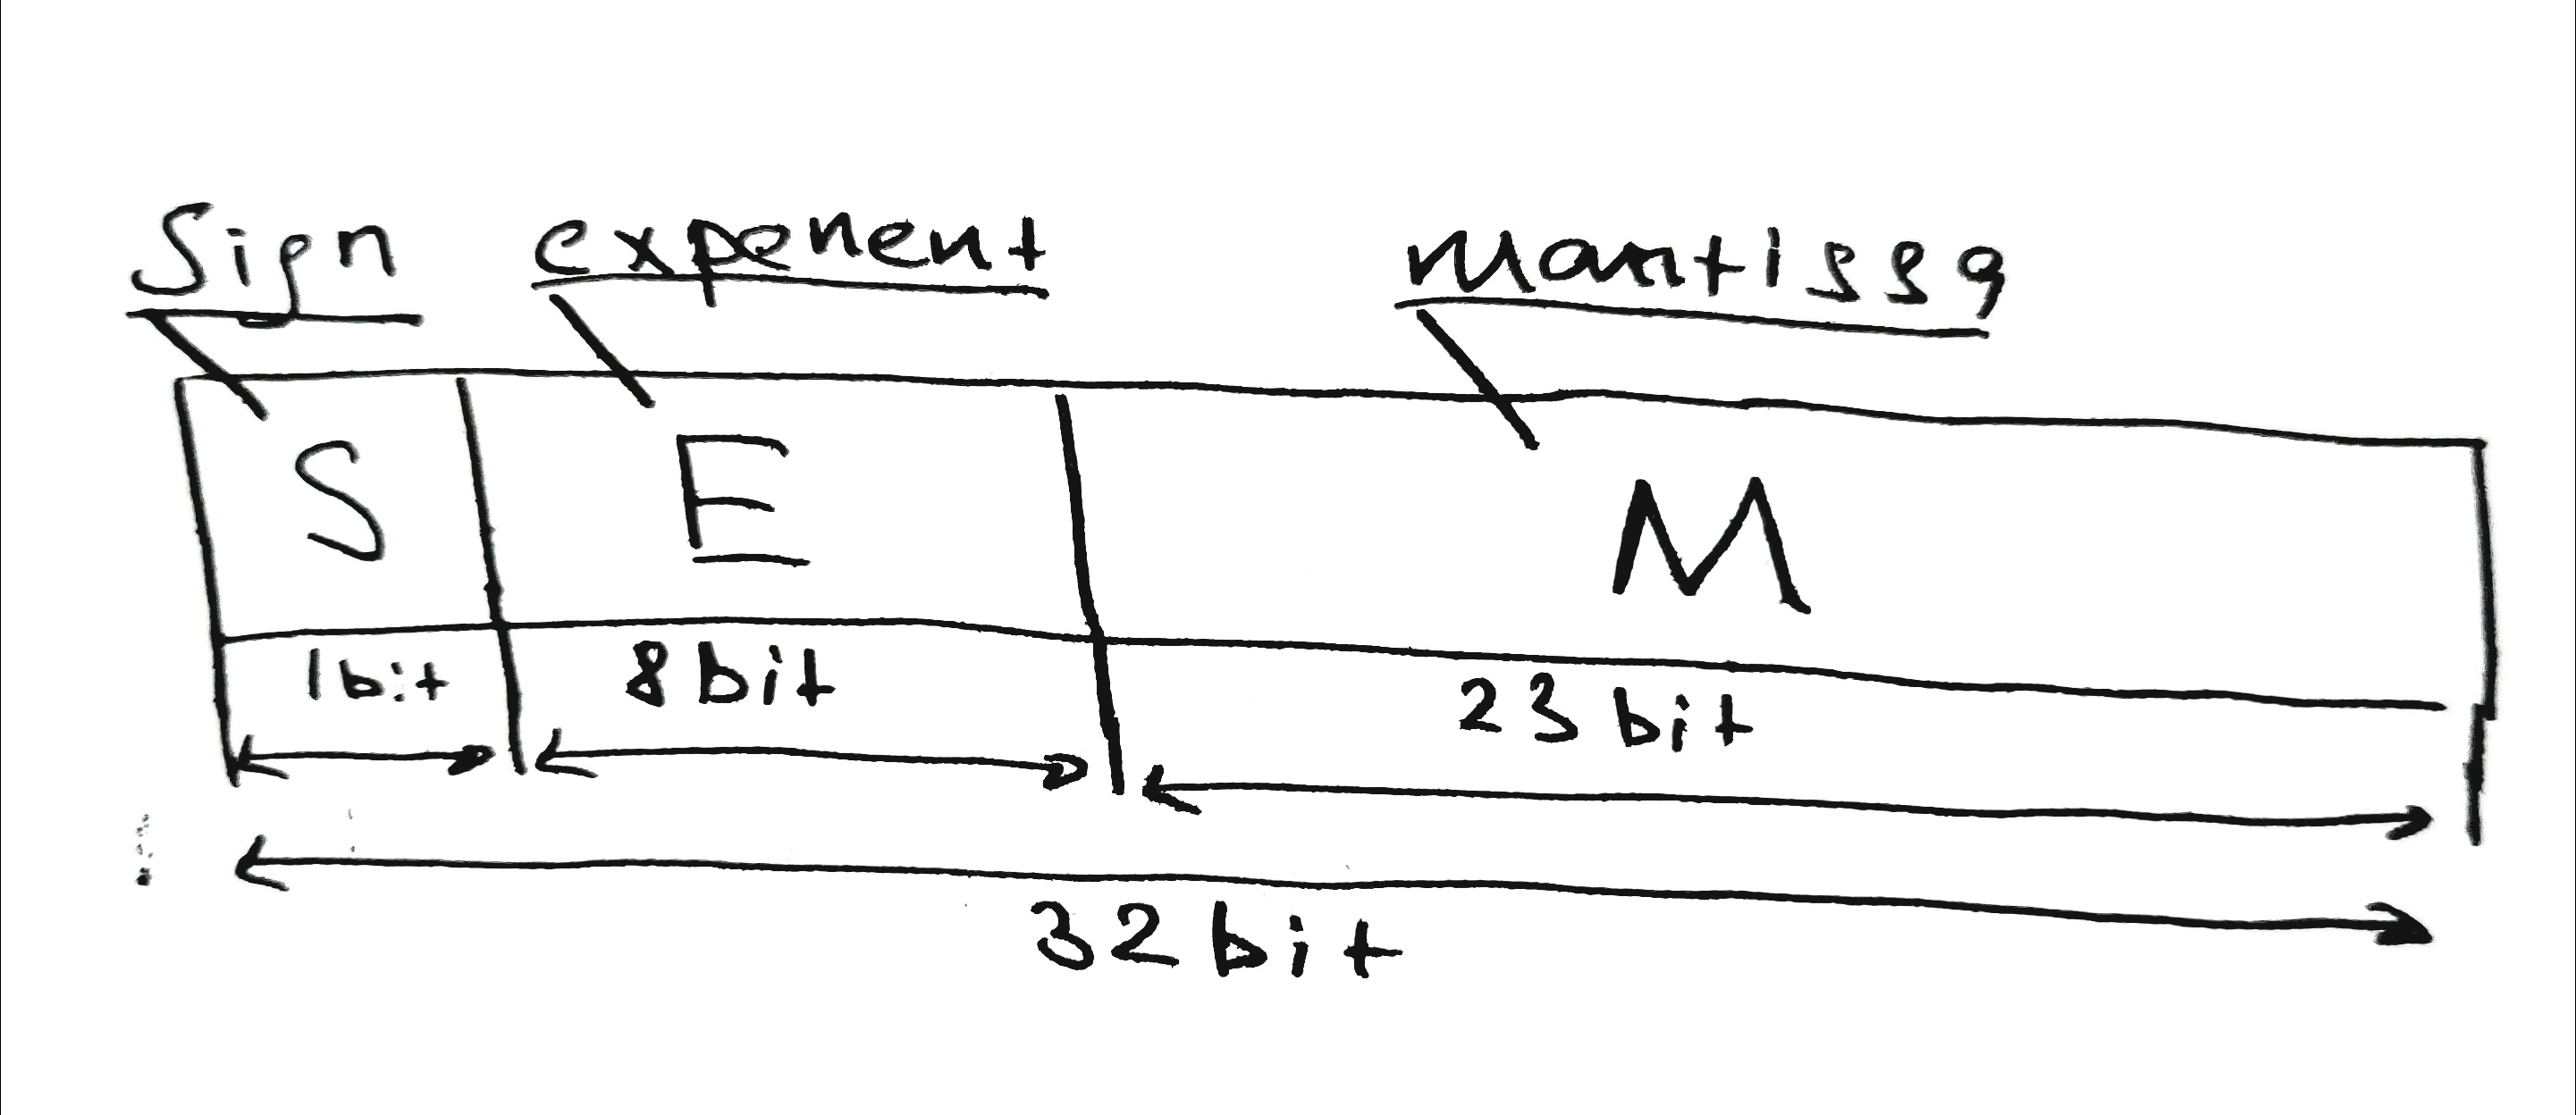 Sign exponent mantissa
S E M
1 bit 8 bit 23 bit
32 bit